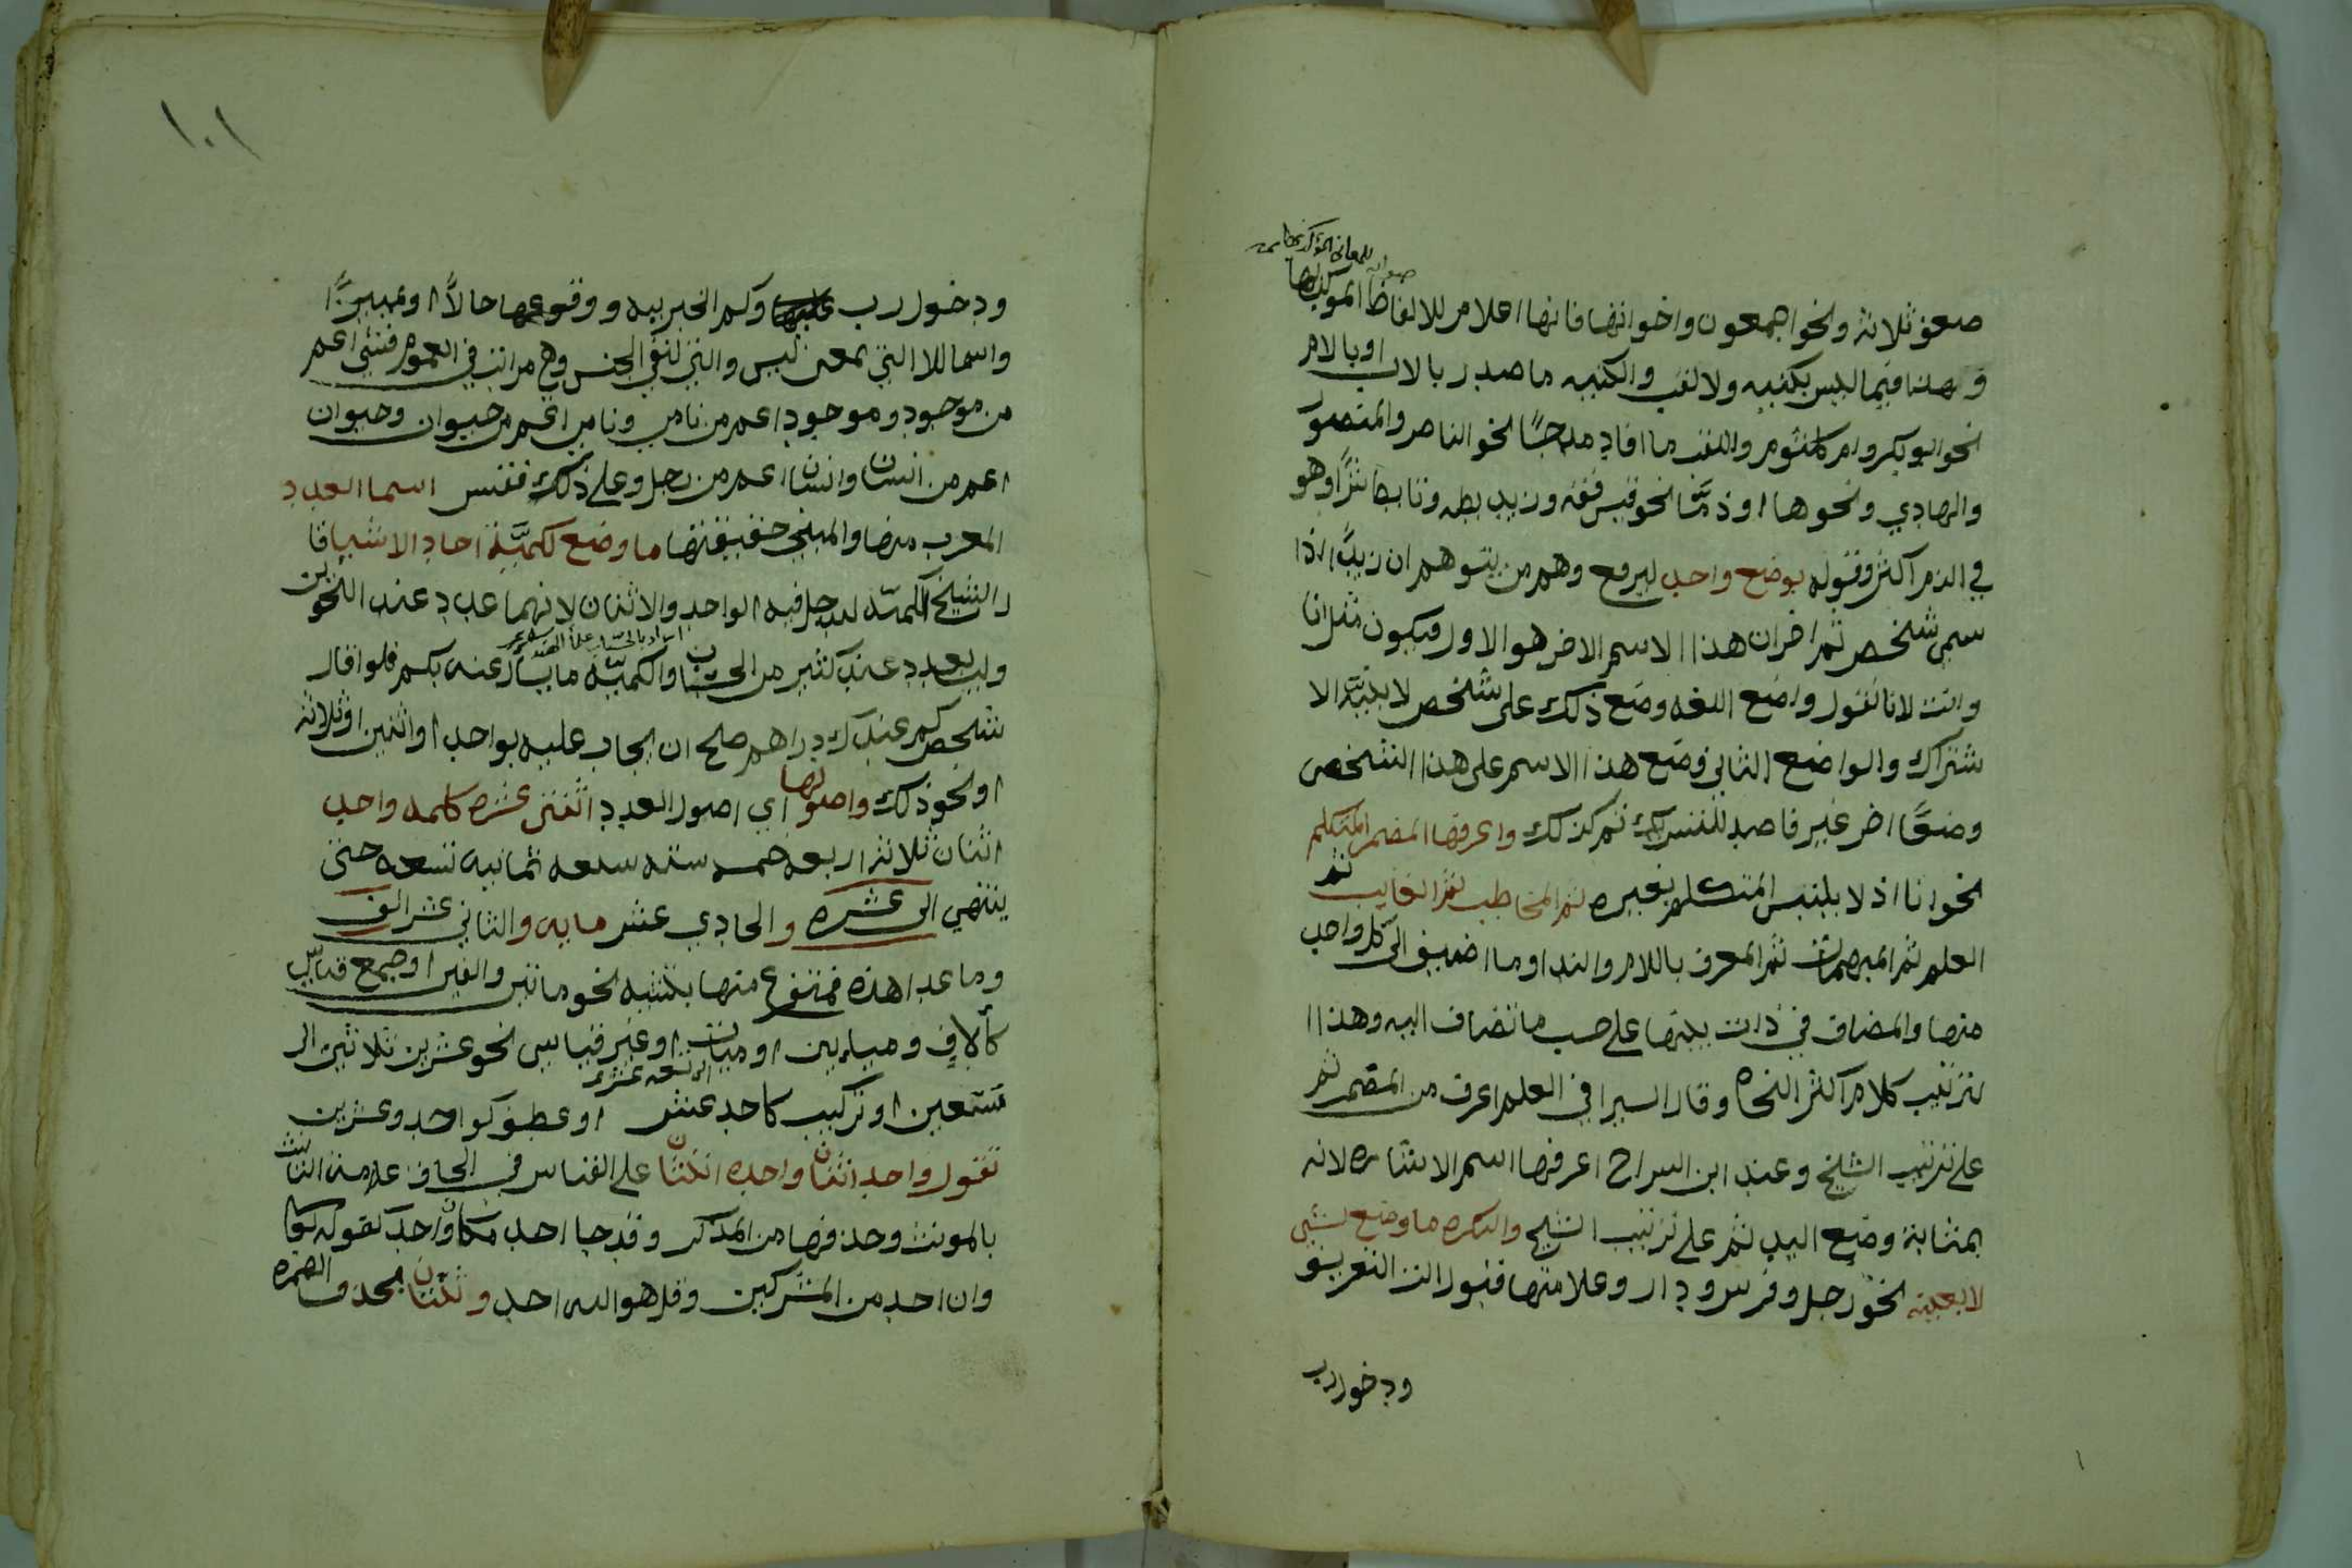 ضعف ثلاثة ونحو اجمعون واخواتها فانها اعلام للالفاظ الموكد بها
وهذا فيما ليس بكنيه ولا لقب والكنيه ما صدر بالاب او بالام
نحو ابو بكر وام كلثوم واللقب ما افاد مدحًا نحو الناصر والمنصور
والهادي ونحوها او ذمًّا نحو قيس قفه وزيد بطه وتابط شرًّا وهو
في الذم اكثر وقوله بوضع واحد ليرفع وهم من يتوهم ان زيدًا اذا
سمي شخص ثم اخر ان هذا الاسم الاخر هو الاول فيكون مثل انا
وانت لانا نقول واضع اللغه وضع ذلك على شخص لا بنيّة الا
شتراك والواضع الثاني وضع هذا الاسم على هذا الشخص
وضعًا اخر غير قاصد للتشريك ثم كذلك واعرفها المضمر المتكلم
نحو انا اذ لا يلتبس المتكلم بغيره ثم المخاطب ثم الغايب ثم
العلم ثم المبهمات ثم المعرف باللام والندا وما اضيف الى كل واحد
منها والمضاف في ذات بينها على حسب ما تضاف اليه وهذا ا
لترتيب كلام اكثر النحاه وقال السيرافي العلم اعرف من المضمر ثم
على ترتيب الشيخ وعند ابن السراج اعرفها اسم الاشاره لانه
بمثابة وضع اليد ثم على ترتيب الشيخ والنكره ما وضع لشي
لا بعينه نحو رجل وفرس ودار وعلامتها قبول الة التعريف
ودخول رب
١٠١
ودخول رب عليها وكم الخبريه ووقوعها حالاً او تمييزًا
واسما للا التي بمعنى ليس والتي لنفي الجنس وهي مراتب في العموم فشي اعم
من موجود وموجود اعم من نامي ونامي اعم من حيوان وحيوان
اعم من انسان وانسان اعم من رجل وعلى ذلك فقس اسما العدد
المعرب منها والمبني حقيقتها ما وضع لكميّة احاد الاشيا قا
ل الشيخ الكميّه ليدخل فيه الواحد والاثنان لانهما عدد عند النحويين
وليس بعدد عند كثير من الحساب والكميّه ما يسأل عنه بكم فلو قال
شخص كم عندك دراهم صلح ان يجاب عليه بواحد او اثنين او ثلاثة
او نحو ذلك واصولها اي اصول العدد اثنتي عشره كلمه واحد
اثنان ثلاثة اربعه خمسه سته سبعه ثمانيه تسعه حتى
ينتهي الى عشره والحادي عشر مايه والثاني عشر الف
وما عدا هذه فمتفرع منها بتثنيه نحو ماتين والفين او جمع قياسي
كآلاف ومياءين او ميات او غير قياسي نحو عشرين ثلاثين الى
تسعين او تركيب كاحد عشر الى تسعه عشر او عطف كواحد وعشرين
تقول واحد اثنان واحده اثنتان على القياس في الحاق علامة التانيث
بالمونث وحذفها من المذكر وقد جا احد مكان واحد كقوله تعا
وان احد من المشركين وقل هو الله احد وثنتان بحذف الهمزه